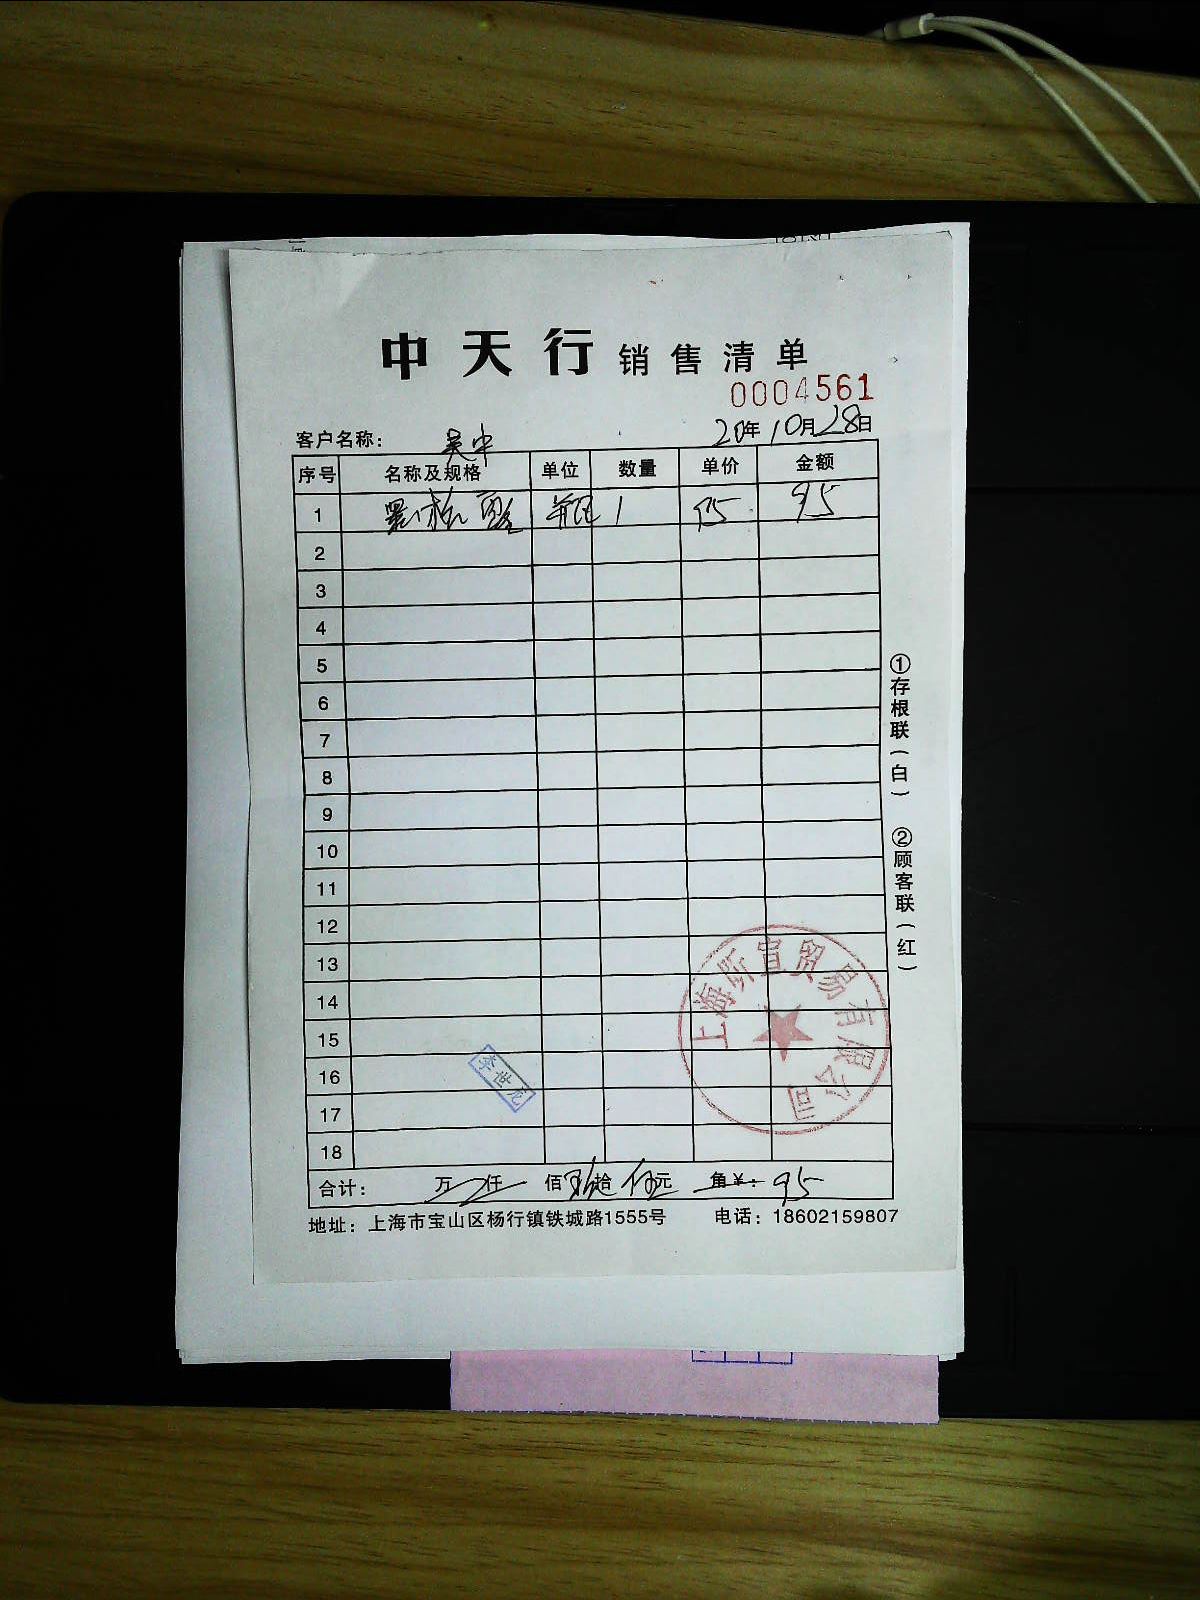 中天行 销售清单
0004561
客户名称： 吴中
20年10月28日
序号 名称及规格 单位 数量 单价 金额
1 瓶 1 95 95
2
3
4
5
6
7
8
9
10
11
12
13
14
15
16
17
18
上海昕宣贸易有限公司
李世龙
合计： 万 仟 佰 玖拾 伍元 角 ¥： 95
地址：上海市宝山区杨行镇铁城路1555号 电话：18602159807
①存根联（白） ②顾客联（红）